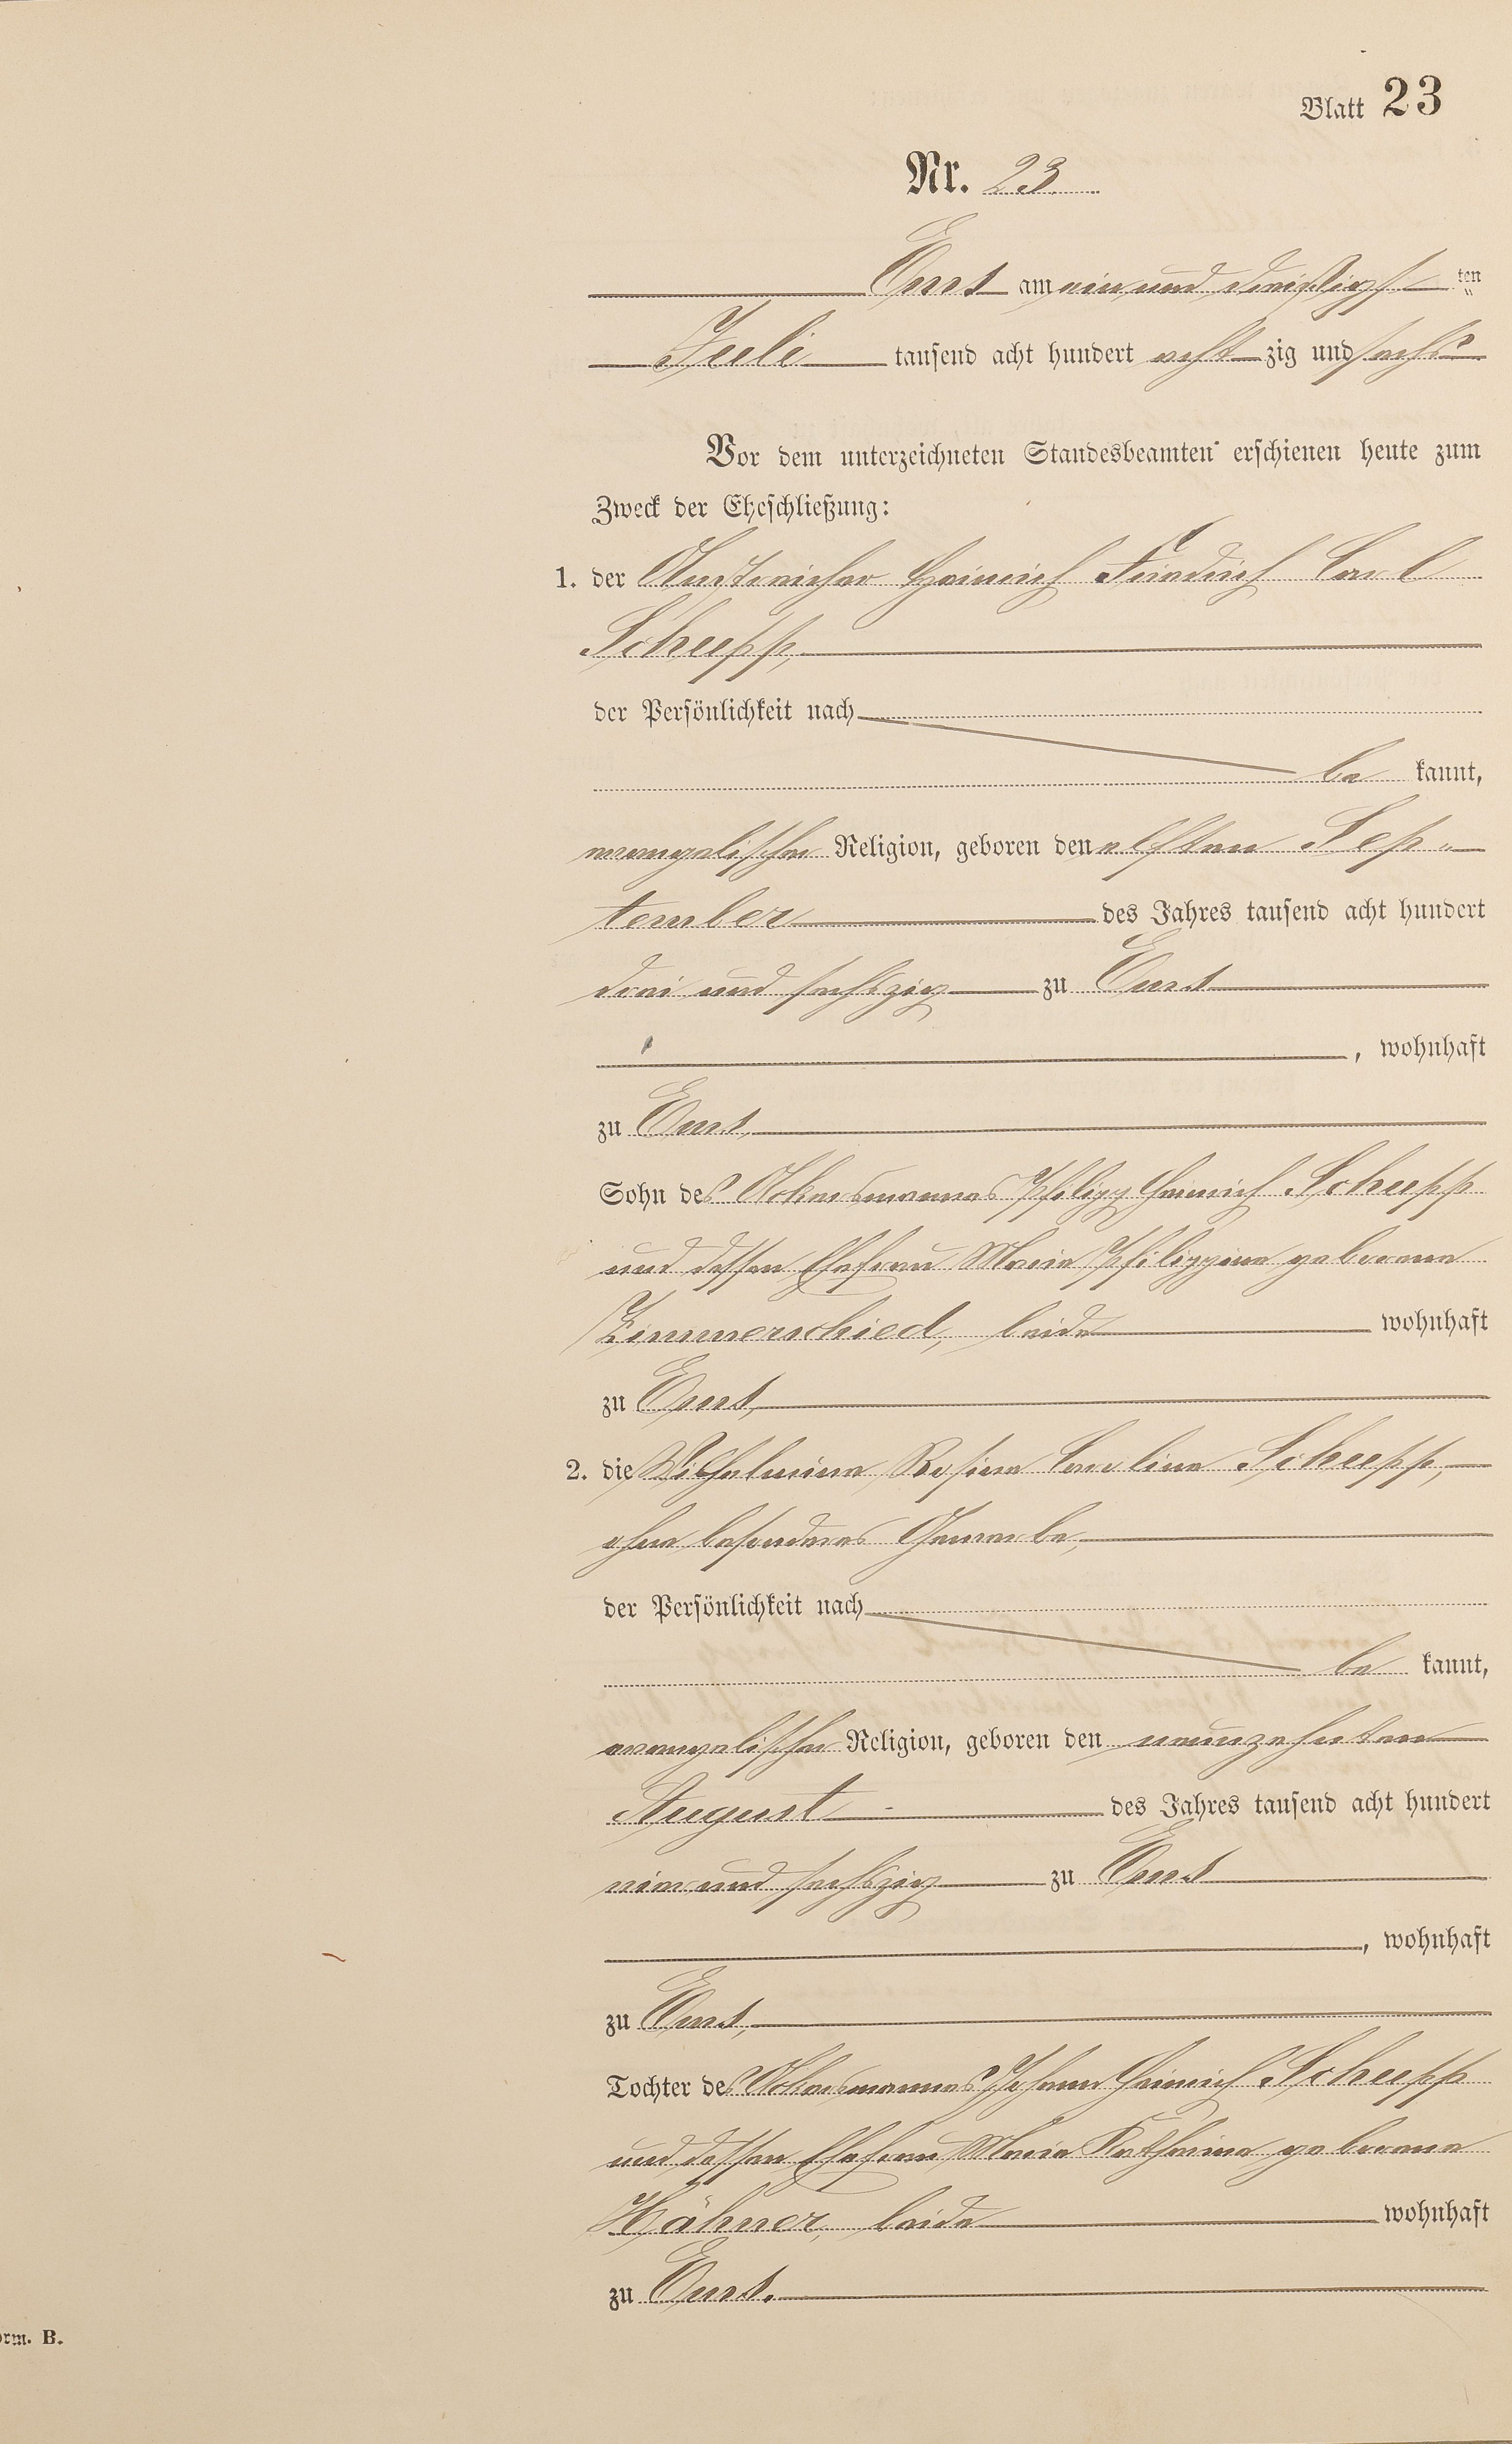 Blatt 23
Nr. 23
Ems am ein und dreißigst ten
Juli tausend acht hundert acht zig und sechs
Vor dem unterzeichneten Standesbeamten erschienen heute zum
Zweck der Eheschließung:
1. der Anstreicher Heinrich Friedrich Carl
Schupp,
der Persönlichkeit nach
be kannt,
evangelischer Religion, geboren den elften Sep-
tember des Jahres tausend acht hundert
drei und sechszig zu Ems
, wohnhaft
zu Ems,
Sohn des Ackersmannes Philipp Heinrich Schupp
und dessen Ehefrau Marie Philippine geborene
Zimmerschied, beide wohnhaft
zu Ems,
2. die Wilhelmine Rosine Caroline Schupp,
ohne besonderes Gewerbe,
der Persönlichkeit nach
be kannt,
evangelischer Religion, geboren den neunzehnten
August des Jahres tausend acht hundert
vier und sechszig zu Ems
, wohnhaft
zu Ems,
Tochter des Ackersmannes Johann Heinrich Schupp
und dessen Ehefrau Marie Katharine geborene
Hähner, beide wohnhaft
zu Ems.
orm. B.